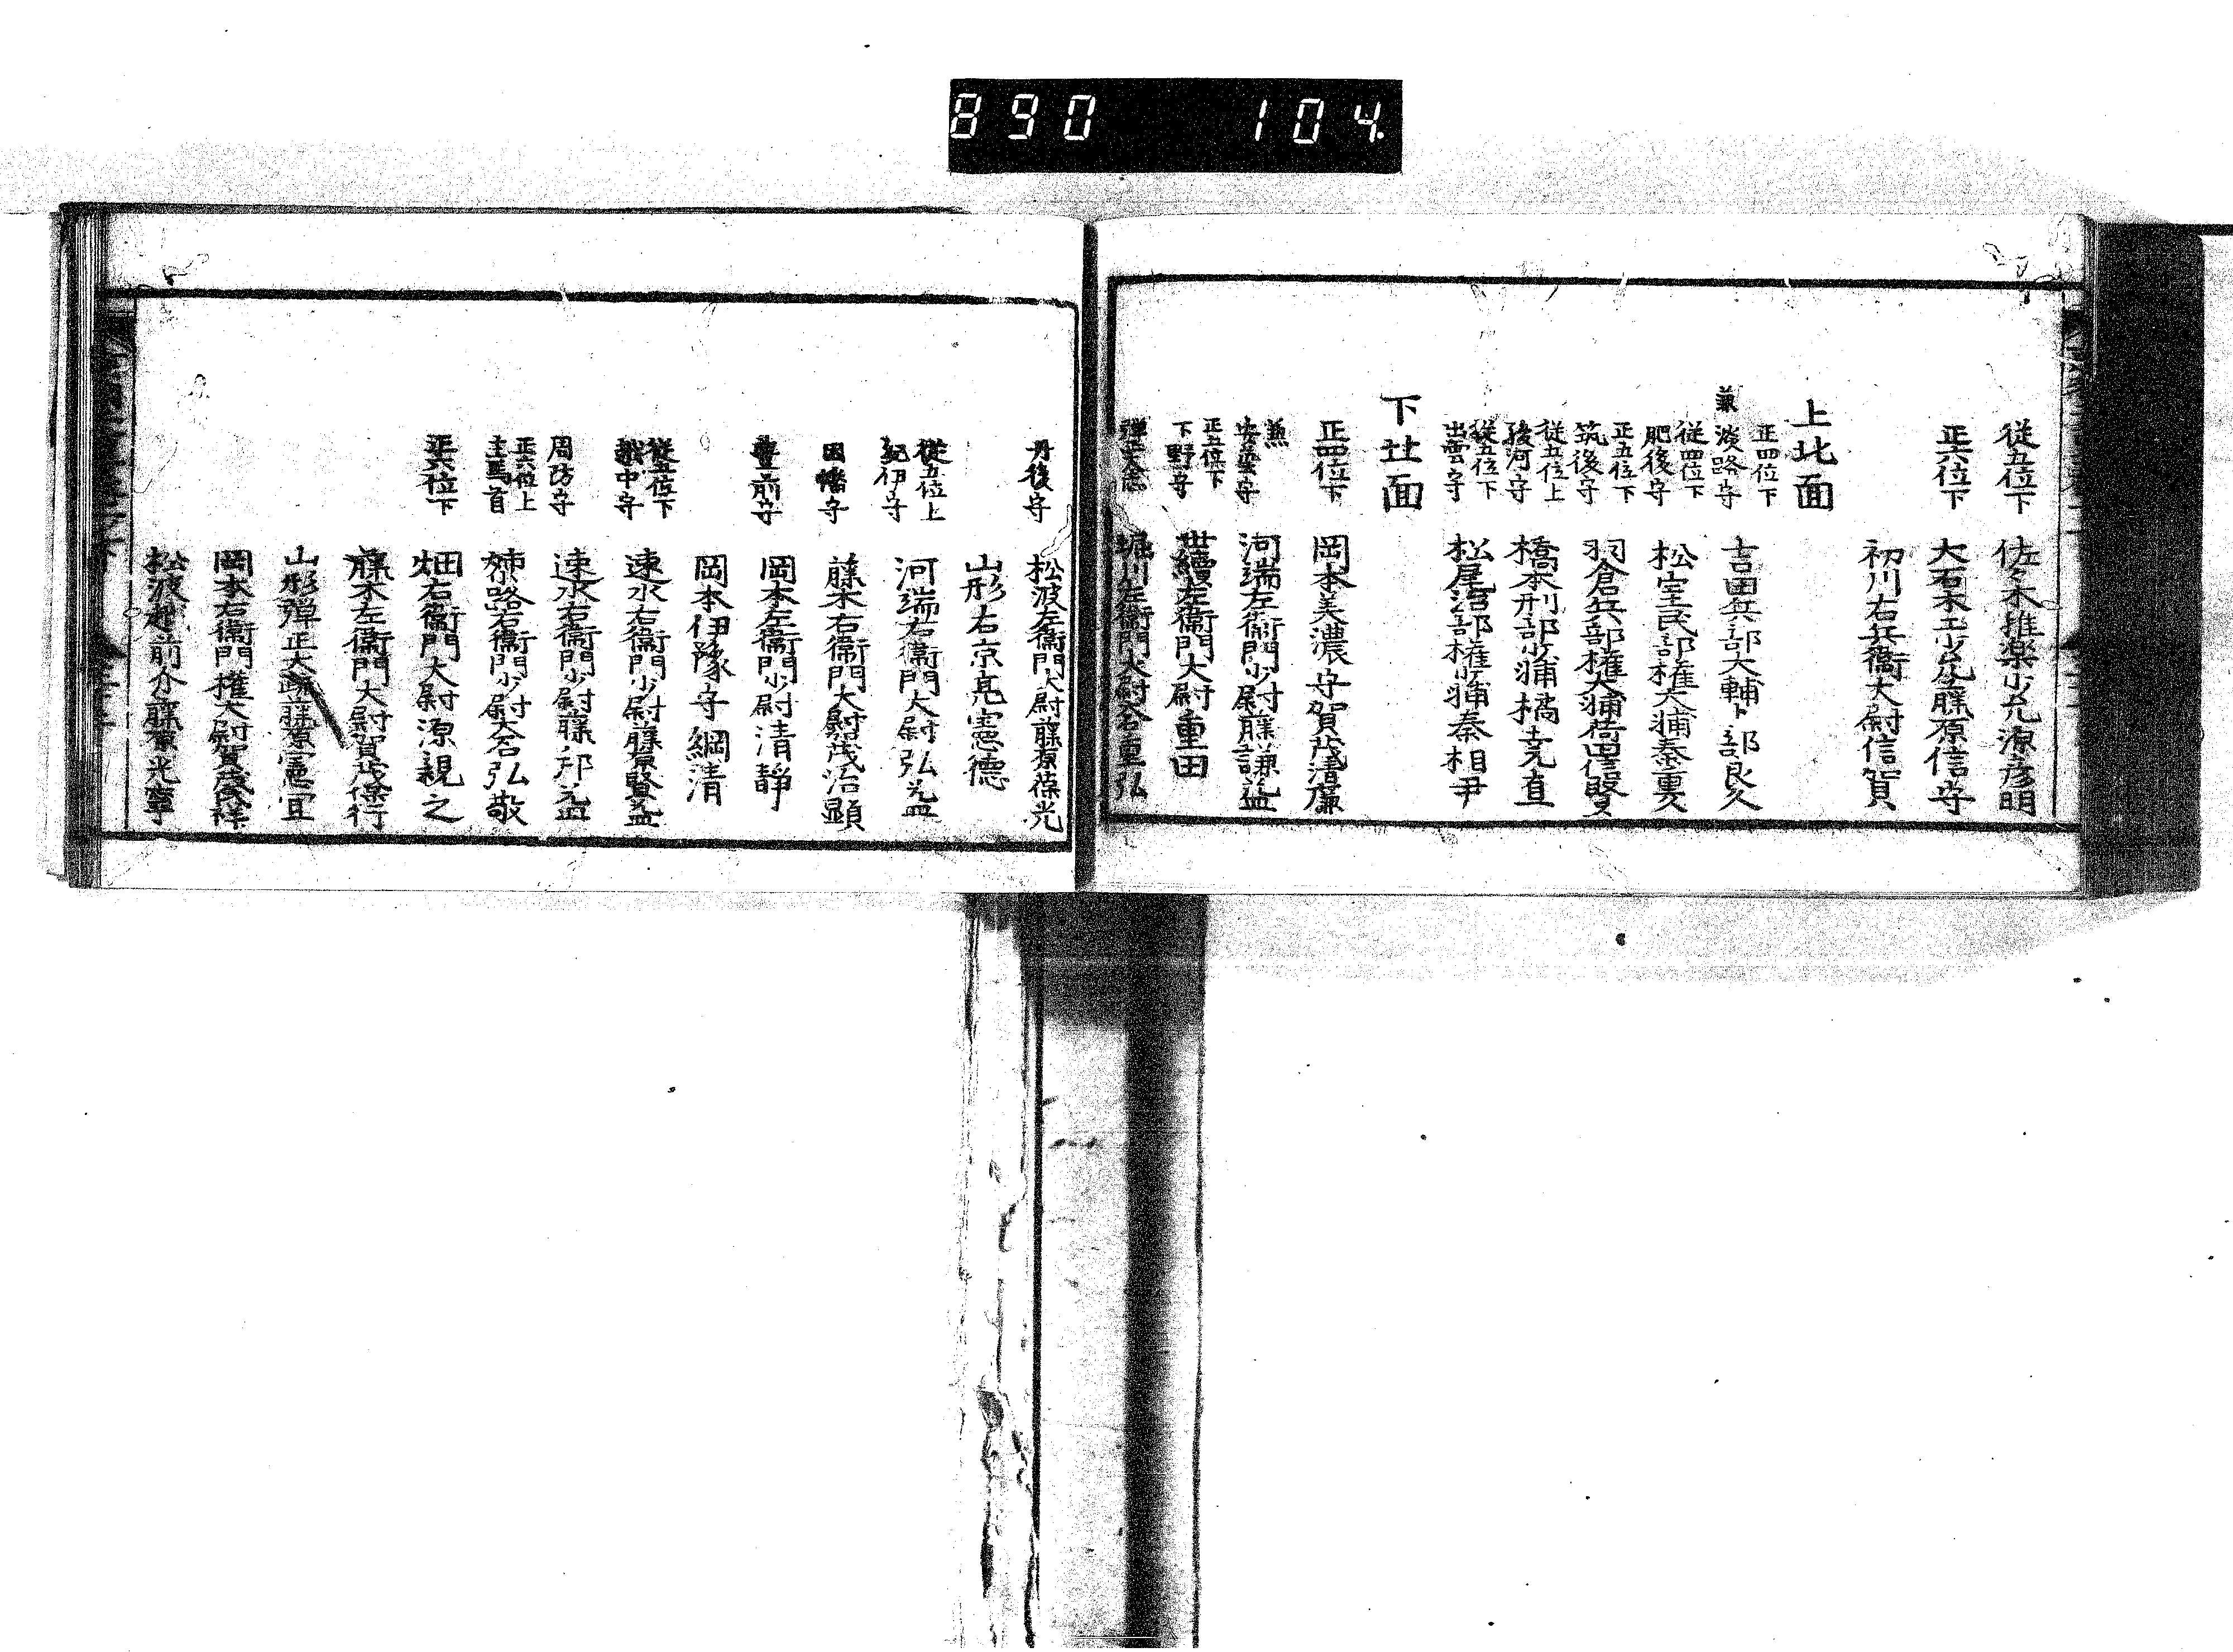 890 104
従五位下 佐々木雅楽少允源彦明
正六位下 大石木工少允藤原信守
初川右兵衞大尉信賀
上北面
正四位下
兼淡路守 吉田兵部大輔卜部良久
従四位下
肥後守 松室民部権大輔秦重久
正五位下
筑後守 羽倉兵部権大輔荷田信賢
従五位上
駿河守 橋本刑部少輔橘克直
従五位下
出雲守 松尾治部権少輔秦相尹
下北面
正四位下 岡本美濃守賀茂清廉
兼
安藝守 河端左衞門少尉藤謙益
正五位下
下野守 世續左衞門大尉重田
堀川左衞門大尉重弘
丹後守 松波左衞門大尉藤原葆光
山形右京亮憲德
従五位上
紀伊守 河端右衞門大尉弘益
因幡守 藤木右衞門大尉茂治顕
豊前守 岡本左衞門少尉清静
岡本伊豫守綱清
従五位下
越中守 速水右衞門少尉藤原賢益
周防守 速水右衞門少尉藤益
正六位上
主馬首 路右衞門少尉弘敬
正六位下 畑右衞門大尉源親之
藤木左衞門大尉賀茂保行
山形弾正大疏藤原憲宜
岡本右衞門権大尉賀茂保
松波越前介藤原光寧